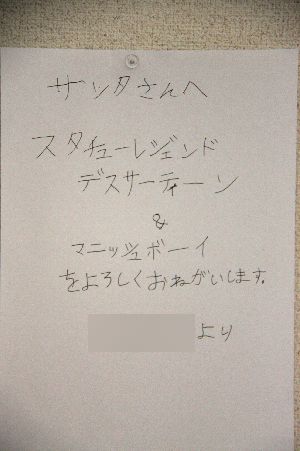 ザッタさんへ
スタチューレジェンド
デスサーティーン
&
マニッシュボーイ
をよろしくおねがいします。
より